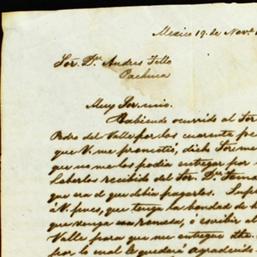 Mexico 19. de Nov.e
Sor. Dn. Andres Tello
Pachuca
Muy Sor. mio.
Habiendo ocurrido al Sor
Pedro del Valle por los cuarenta pe
que V. me prometió, dicho Sor. me
que no me los podia entregar por
haberlos recibido del Sor. Dn.
que era el que debia pagarlos.
á V. pues, que tenga la bondad de
que venga una ó escribir al
Valle para que me entregue dha.
por lo cual le quedará agradecido